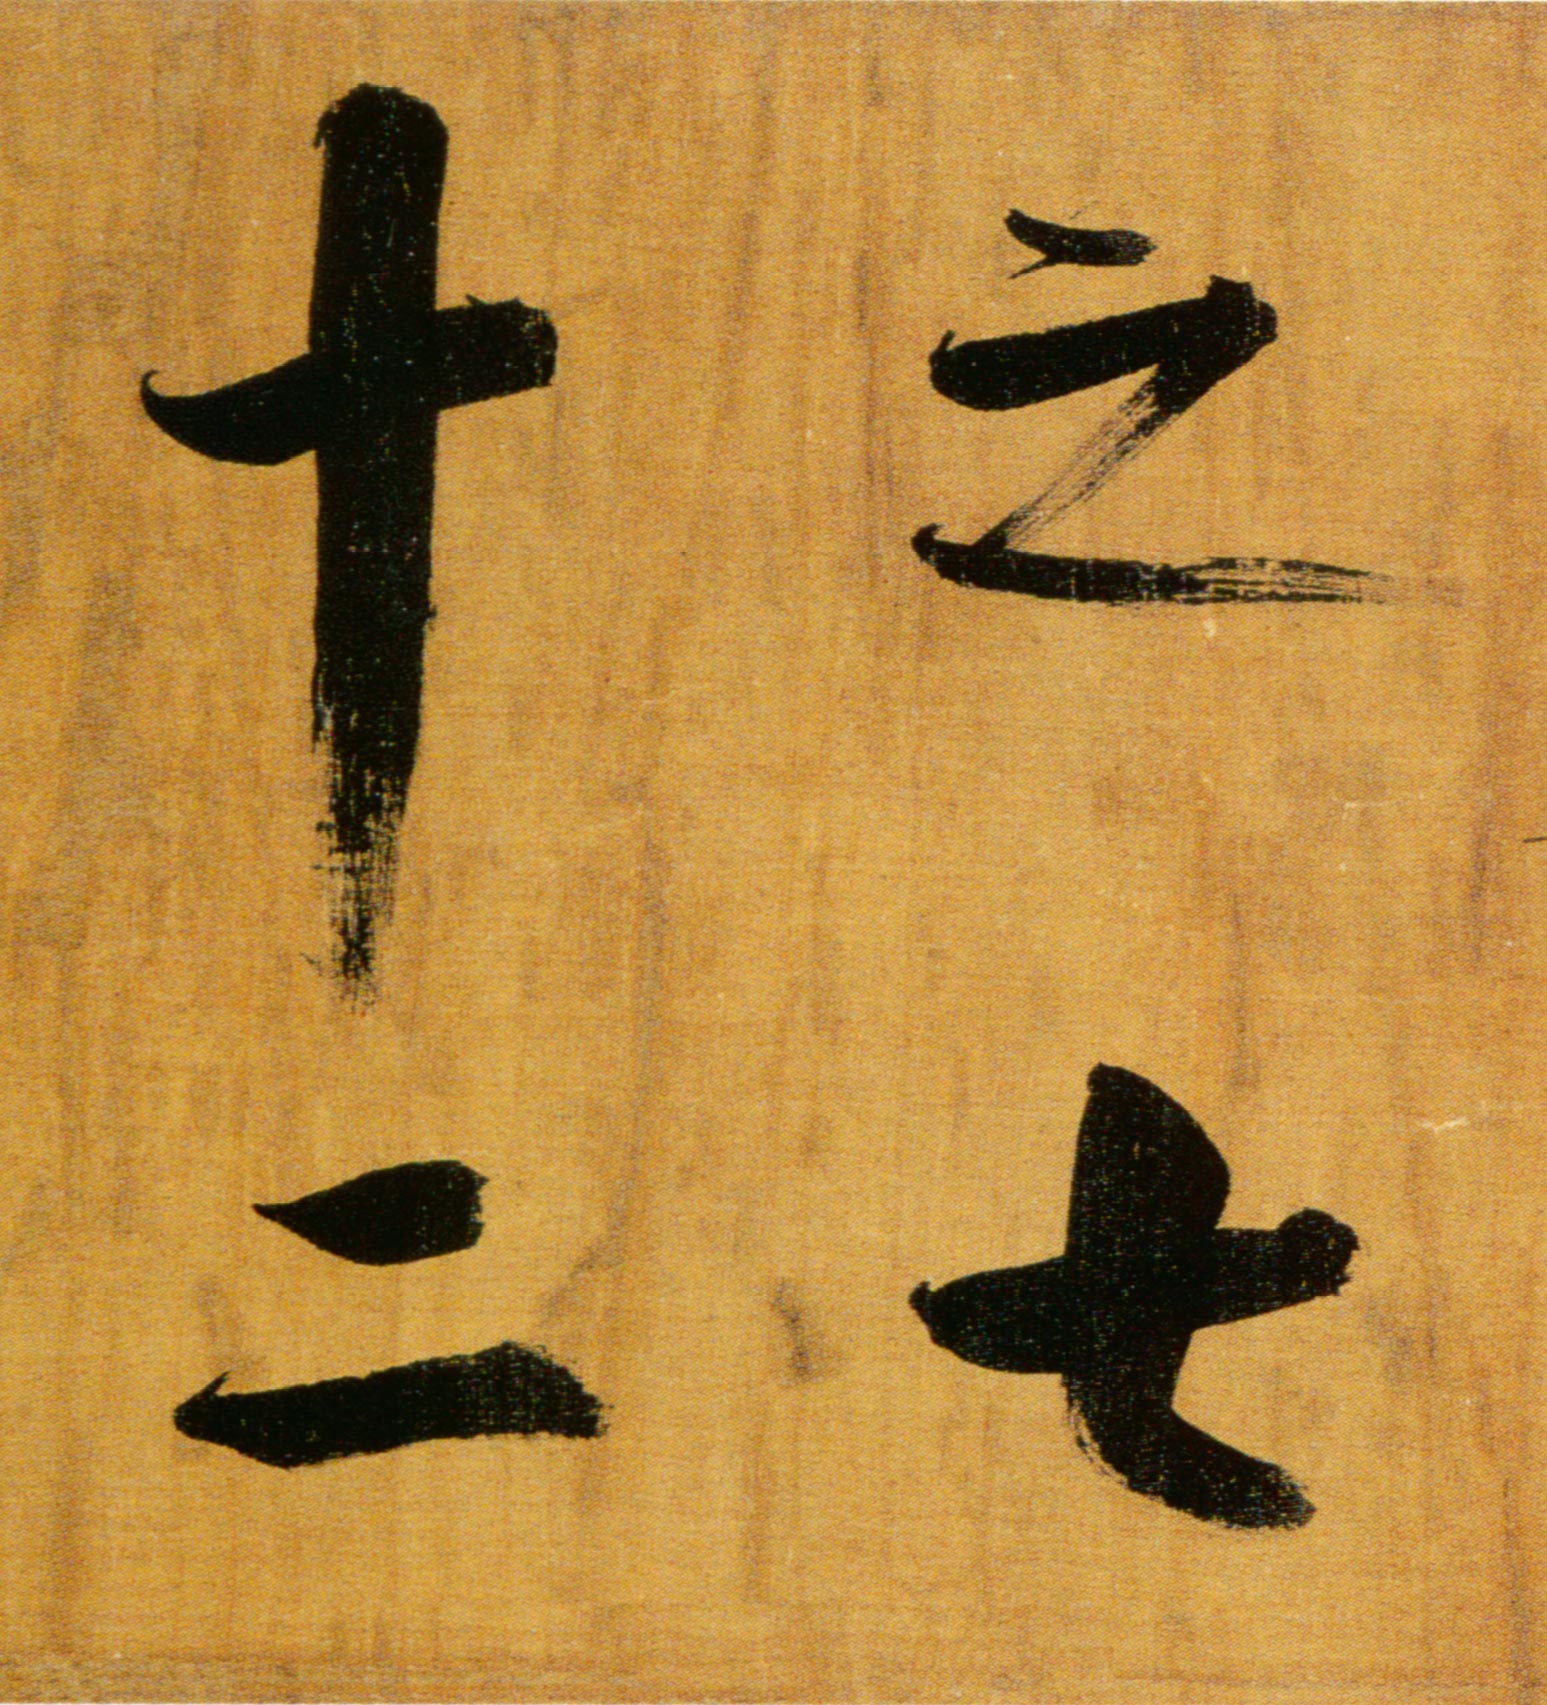 之七
十二